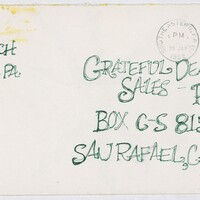 CH
PA
PM
GRATEFUL DEA
SALES -
BOX G-S 813
SAN RAFAEL, C